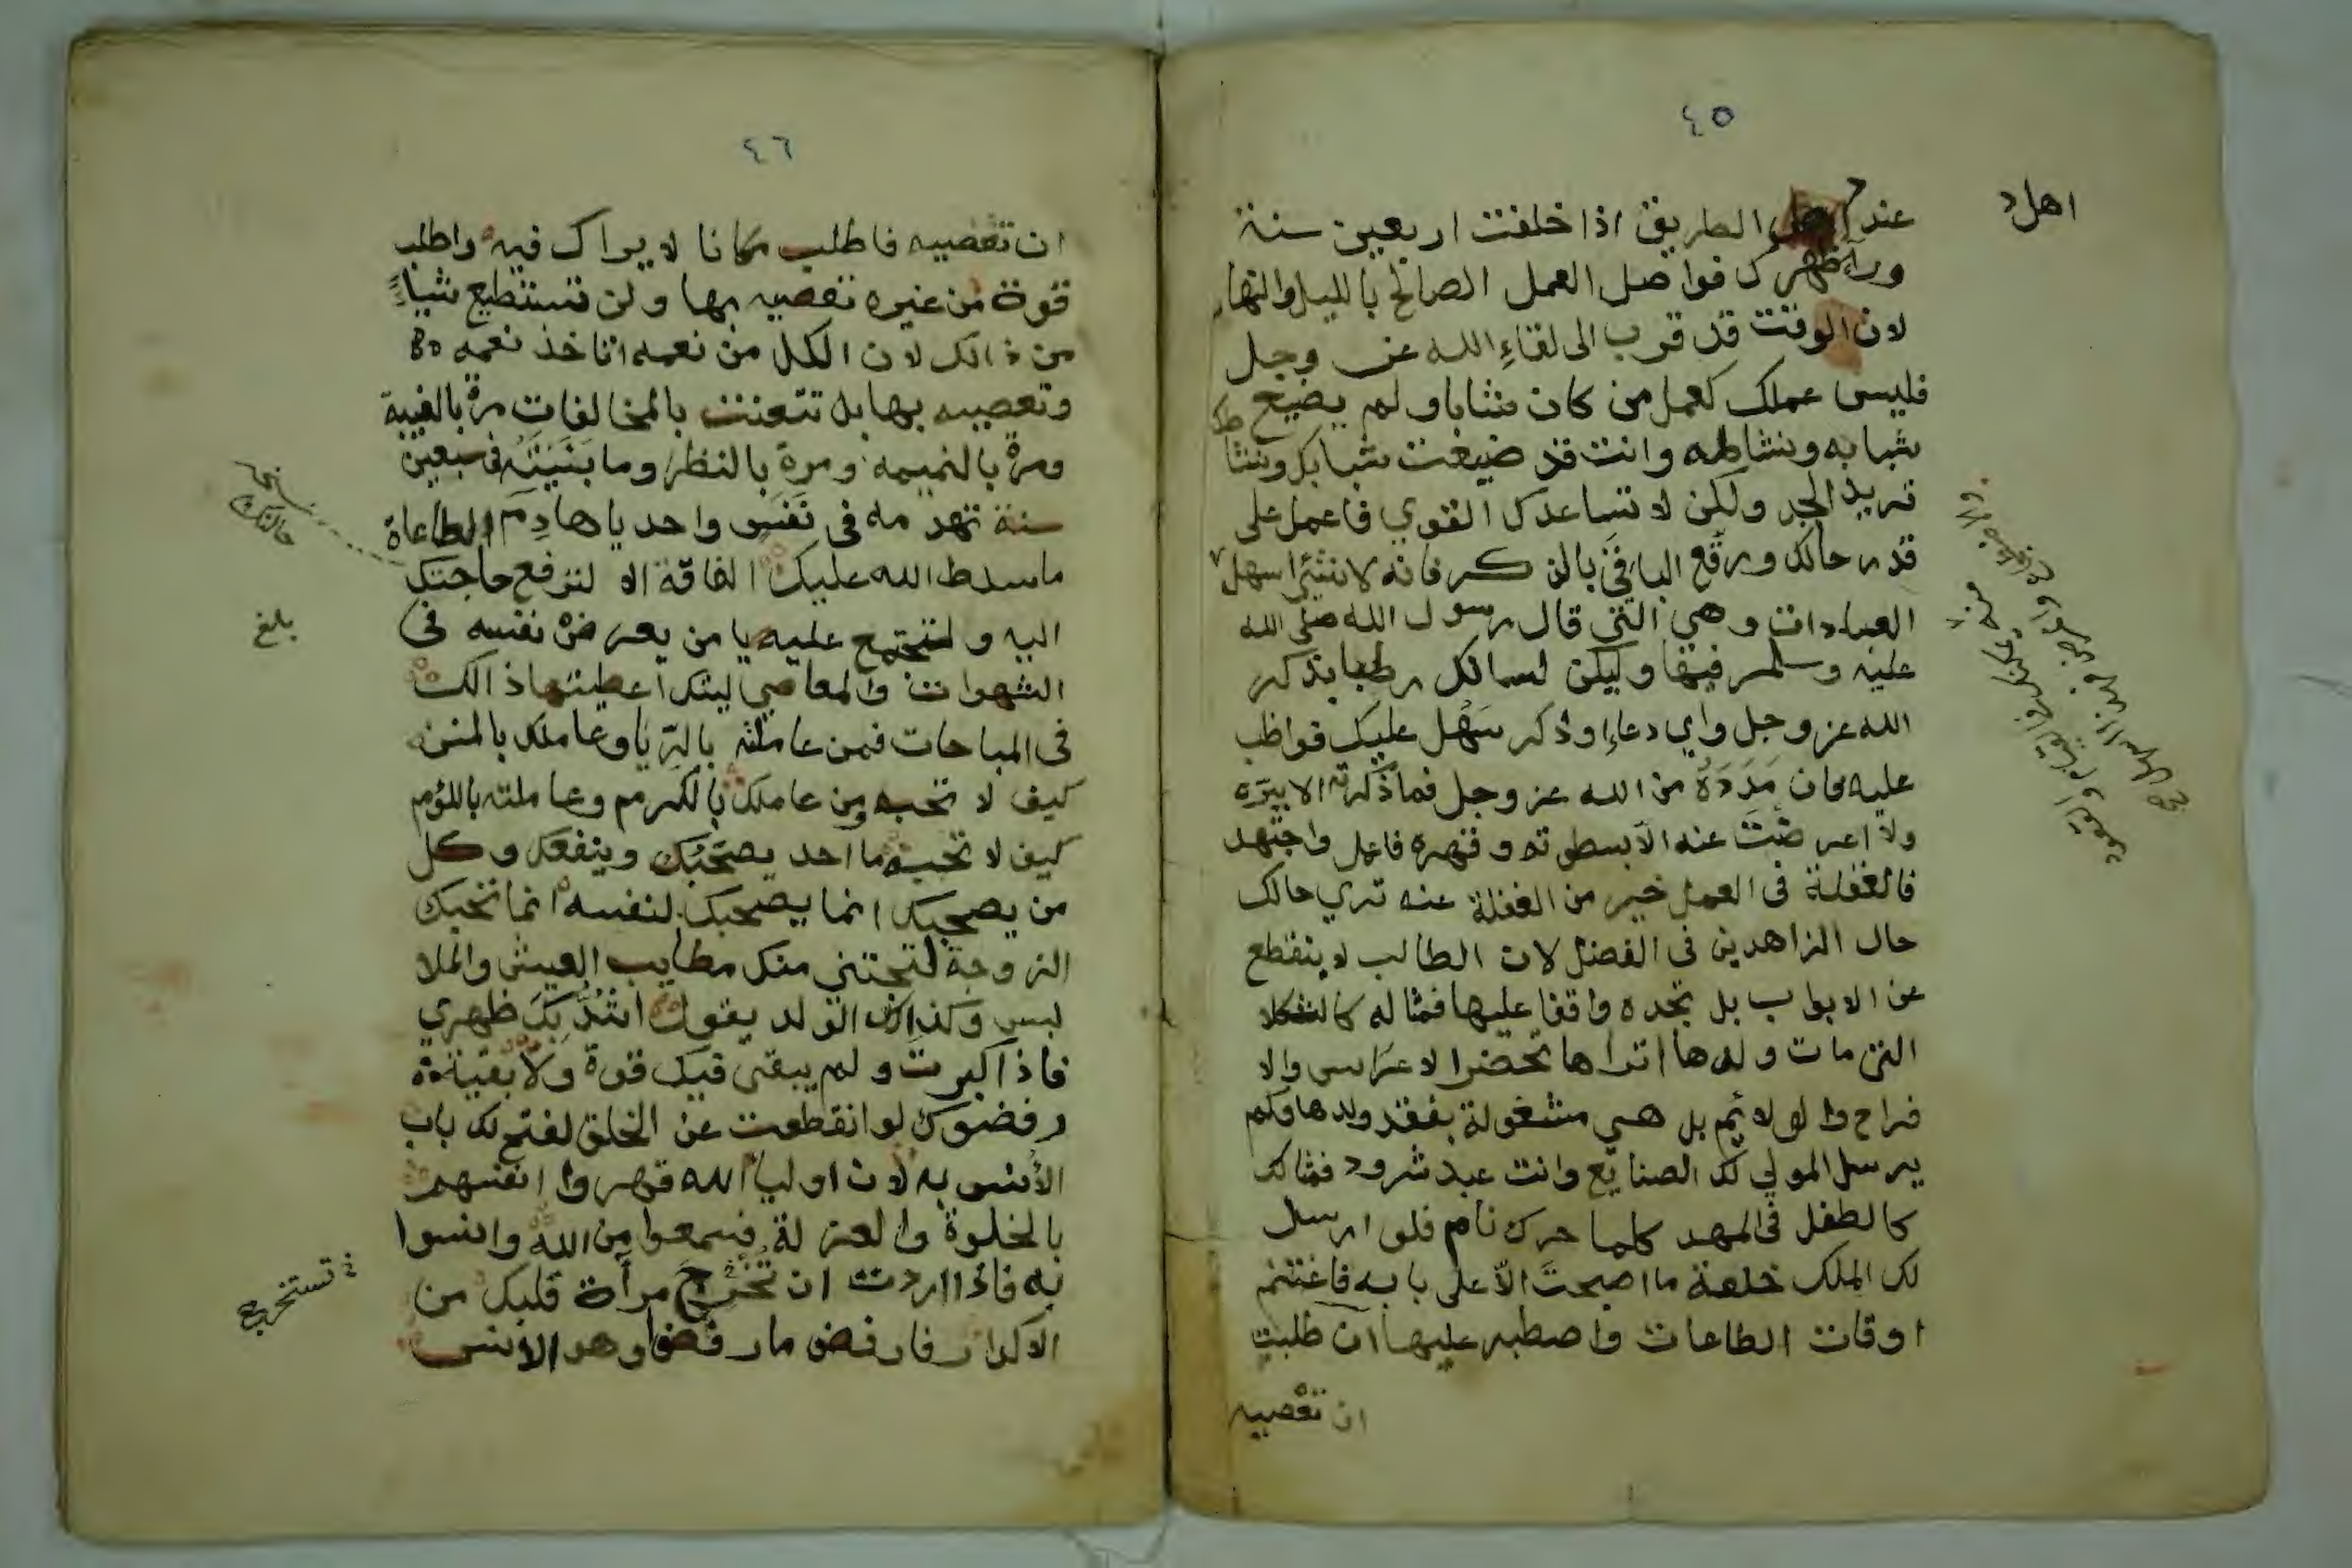 ٤٥
اهل
عند اهل الطريق اذا خلفت اربعين سنة
ورآء ظهرك فواصل العمل الصالح بالليل والنهار
لان الوقت قد قرب الى لقاءِ الله عز وجل
فليس عملك كعمل من كان شابا ولم يضيع
شبابه ونشاطه وانت قد ضيعت شبابك ونشاطك
تريد الجد ولكن لا تساعدك القوي فاعمل على
قدر حالك ورقّع الباقي بالذكر فانه لا شئ اسهل
العبادات وهي التي قال رسول الله صلى الله
عليه وسلم فيها وليكن لسانك رطبا بذكر
الله عز وجل واي دعاءِ وذكر سَهُل عليك فواظب
عليه فان مَدَدَهُ من الله عز وجل فما ذكرته الا ببِرّه
ولا اعرضْتَ عنه الا بسطوته وقهره فاعمل واجتهد
فالغفلة فى العمل خير من الغفلة عنه تري حالك
حال الزاهدين فى الفضل لان الطالب لا ينقطع
عن الابواب بل تجده واقفا عليها فمثاله كالثكلا
التى مات ولدها اتراها تحضر الاعراس والا
فراح والولائم بل هي مشغولة بفقد ولدها وكم
يرسل المولي لك الصنايع وانت عبد شرود فمثالك
كالطفل فى المهد كلما حرك نام فلو ارسل
لك الملك خلعة ما اصبحتَ الّا على بابه فاغتنم
اوقات الطاعات واصطبر عليها ان طلبت
ان تعصيه
٤٦
ان تعصيه فاطلب مكانا لا يراك فيه واطلب
قوة من غيره تعصيه بها ولن تستطيع شياءً
من ذالك لان الكل من نعمه اتاخذ نعمه
وتعصيه بها بل تتعنت بالمخالفات مرة بالغيبة
ومرة بالنميمه ومرة بالنظر وما بَنَيْتَهُ فى سبعين
سنة تهدمه فى نَفَسٍ واحد يا هادِمَ الطاعاة
ما سلط الله عليك الفاقة الا لترفع حاجتك
اليه ولتجتمع عليه يا من يعرض نفسه فى
بلغ
الشهوات والمعاصي ليتك اعطيتها ذالك
فى المباحات فمن عاملته بالرّيا وعاملك بالمنن
كيف لا تحبه من عاملك بالكرم وعاملته باللؤم
كيف لا تحبه ما احد يصحَبُك وينفعك وكل
من يصحبك انما يصحبك لنفسه انما تحبك
الزوجة لتجتني منك مطايب العيش والملا
لبس وكذالك الولد يقول اشُدُّ بِكَ ظهري
فاذا كبرت ولم يبقى فيك قوة ولا بقية
رفضوك لو انقطعت عن الخلق لفتح لك باب
الأنس به لان اولياَ الله قهروا انفسهم
بالخلوة والعزلة فسمعوا من الله وانسوا
به فاذا اردت ان تخرج مرأة قلبك من
الاكدار فارفض ما رفضوا وهو الانس
تستخرج